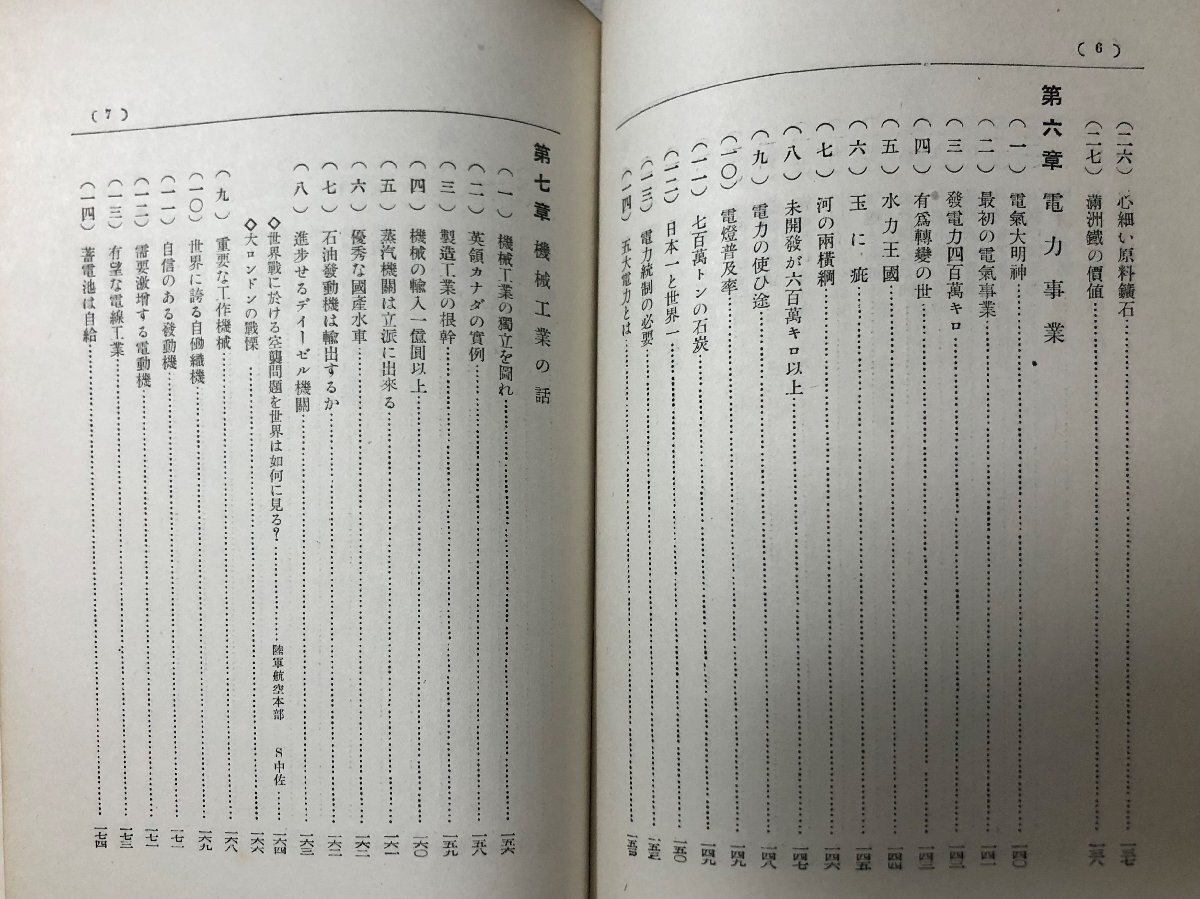 ( 6 )
(二六) 心細い原料鑛石……一三七
(二七) 滿洲鐵の價値……一三八
第六章 電力事業
(一) 電氣大明神……一四〇
(二) 最初の電氣事業……一四一
(三) 發電力四百萬キロ……一四二
(四) 有爲轉變の世……一四三
(五) 水力王國……一四四
(六) 玉に疵……一四五
(七) 河の兩橫綱……一四六
(八) 未開發が六百萬キロ以上……一四七
(九) 電力の使ひ途……一四八
(一〇) 電燈普及率……一四九
(一一) 七百萬トンの石炭……一四九
(一二) 日本一と世界一……一五〇
(一三) 電力統制の必要……一五三
(一四) 五大電力とは……一五四
( 7 )
第七章 機械工業の話
(一) 機械工業の獨立を圖れ……一五六
(二) 英領カナダの實例……一五八
(三) 製造工業の根幹……一五九
(四) 機械の輸入一億圓以上……一六〇
(五) 蒸汽機關は立派に出來る……一六一
(六) 優秀な國產水車……一六二
(七) 石油發動機は輸出するか……一六二
(八) 進步せるデイーゼル機關……一六三
◇世界戰に於ける空襲問題を世界は如何に見る?……陸軍航空本部 S中佐……一六四
◇大ロンドンの戰慄……一六六
(九) 重要な工作機械……一六八
(一〇) 世界に誇る自働織機……一六九
(一一) 自信のある發動機……一七一
(一二) 需要激增する電動機……一七二
(一三) 有望な電線工業……一七三
(一四) 蓄電池は自給……一七四